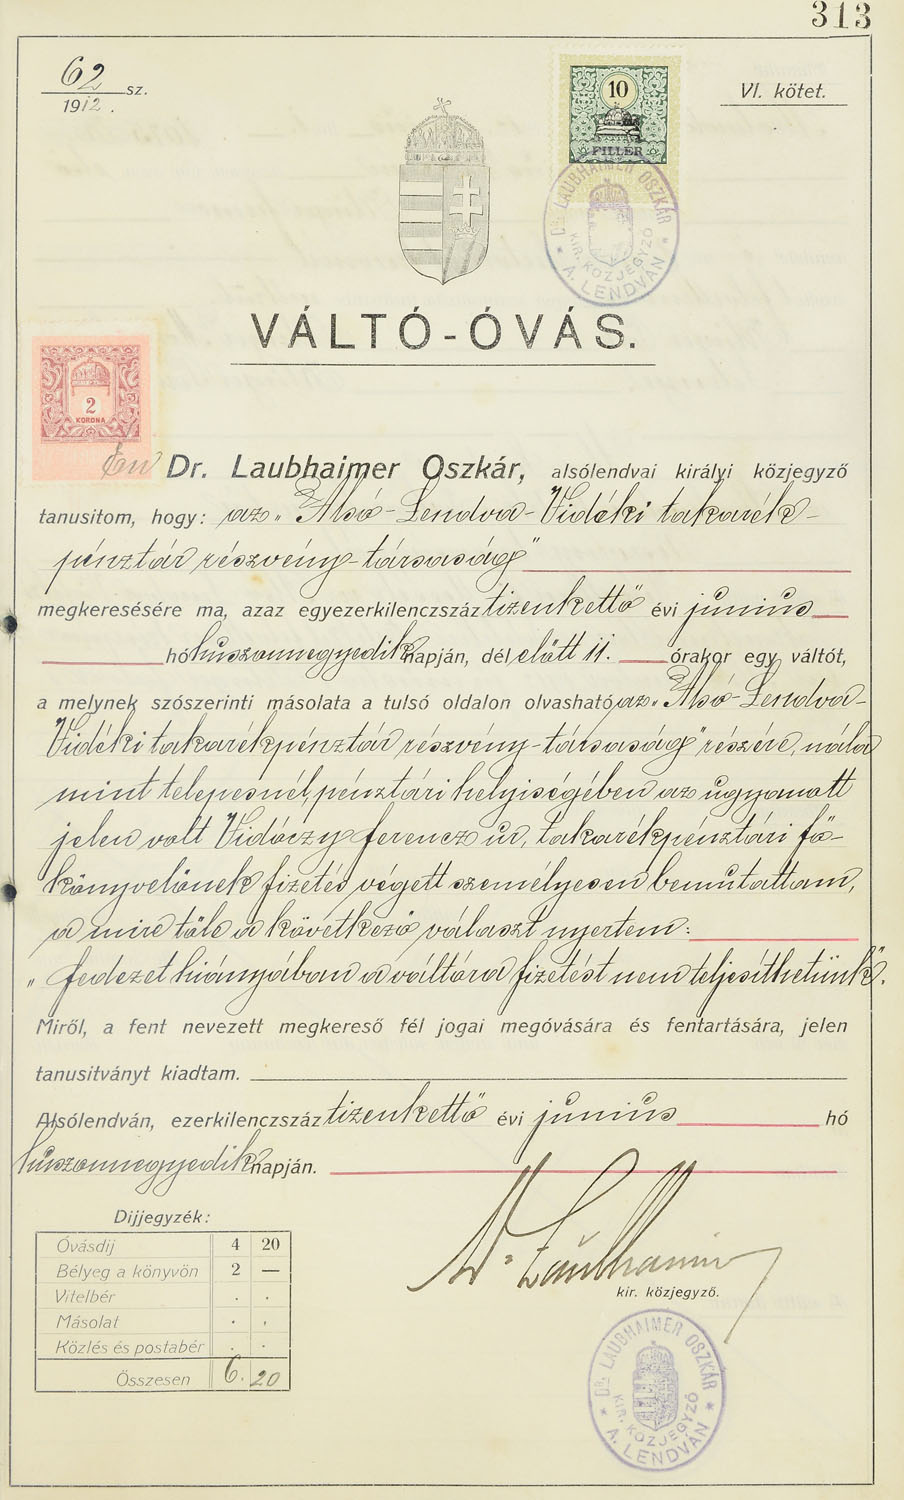 313
62 sz.
1912.
VI. kötet.
10
FILLÉR
Dr. LAUBHAIMER OSZKÁR
KIR. KÖZJEGYZŐ
* A. LENDVÁN *
VÁLTÓ-ÓVÁS.
2
KORONA
Én Dr. Laubhaimer Oszkár, alsólendvai királyi közjegyző
tanusitom, hogy: az „Alsó-Lendva-Vidéki takarék-
pénztár részvény-társaság"
megkeresésére ma, azaz egyezerkilenczszáz tizenkettő évi junius
hó huszonnegyedik napján, dél előtt 11. órakor egy váltót,
a melynek szószerinti másolata a tulsó oldalon olvasható az „Alsó-Lendva-
Vidéki takarékpénztár részvény-társaság" részére, nála
mint telepesnél, pénztári helyiségében az ugyanott
jelen volt Vidóczy Ferencz úr, takarékpénztári fő-
könyvelőnek fizetés végett személyesen bemutattam,
a mire tőle a következő választ nyertem:
„fedezet hiányában a váltóra fizetést nem teljesíthetünk".
Miről, a fent nevezett megkereső fél jogai megóvására és fentartására, jelen
tanusitványt kiadtam.
Alsólendván, ezerkilenczszáz tizenkettő évi junius hó
huszonnegyedik napján.
Dijjegyzék:
Óvásdij 4 20
Bélyeg a könyvön 2 —
Vitelbér . .
Másolat . .
Közlés és postabér . .
Összesen 6. 20
Dr. Laubhaimer
kir. közjegyző.
Dr. LAUBHAIMER OSZKÁR
KIR. KÖZJEGYZŐ
* A. LENDVÁN *